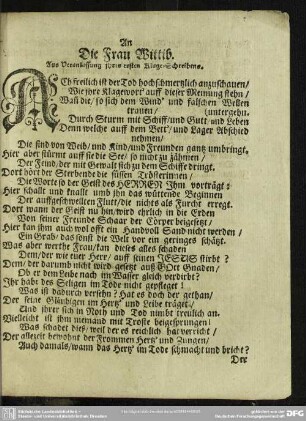 An
Die Frau Wittib.
Aus Veranlassung ihres ersten Klage-Schreibens.
ACh freilich ist der Tod hochschmertzlich anzuschauen/
Wie jhre Klagewort' auff dieser Meinung stehn/
Wañ die/ so sich dem Wind' und falschen Wellen
trauen/ (untergehn.
Durch Sturm mit Schiff/ und Gutt und Leben
Denn welche auff dem Bett'/ und Lager Abschied
nehmen/
Die sind von Weib/ und Kind/ und Freunden gantz umbringt.
Hier aber stürmt auff sie die See/ so nicht zu zähmen/
Der Feind/ der mit Gewalt sich zu dem Schiffe dringt.
Dort hört der Sterbende die süssen Trösterinnen/
Die Worte/ so der Geist des HERREN Ihm vorträgt:
Hier schallt und knallt und ihn das wüttende Beginnen
Der auffgeschwellten Flutt/ die nichts als Furcht erregt.
Dort wann der Geist nu hin/ wird ehrlich in die Erden
Von seiner Freunde Schaar der Cörper beigesetzt/
Hier kan jhm auch wol offt ein Handvoll Sand nicht werden/
Ein Grab/ das sonst die Welt vor ein geringes schätzt.
Was aber werthe Frau/ kan dieses alles schaden
Dem/ der wie euer Herr/ auff seinen JESUS stirbt?
Dem/ der darumb nicht wird gesetzt auß GOtt Gnaden/
Ob er dem Leibe nach im Wasser gleich verdirbt?
Ihr habt des Seligen im Tode nicht gepfleget!
Was ist dadurch versehn? Hat es doch der gethan/
Der seine Gläubigen im Hertz' und Leibe träget/
Und jhrer sich in Noth und Tod nimbt treulich an.
Vielleicht ist jhm niemand mit Troste beigesprungen!
Was schadet dieß/ weil der es reichlich hat verricht/
Der allezeit bewohnt der Frommen Hertz und Zungen/
Auch damals/ wann das Hertz im Tode schmacht und bricht?
Der